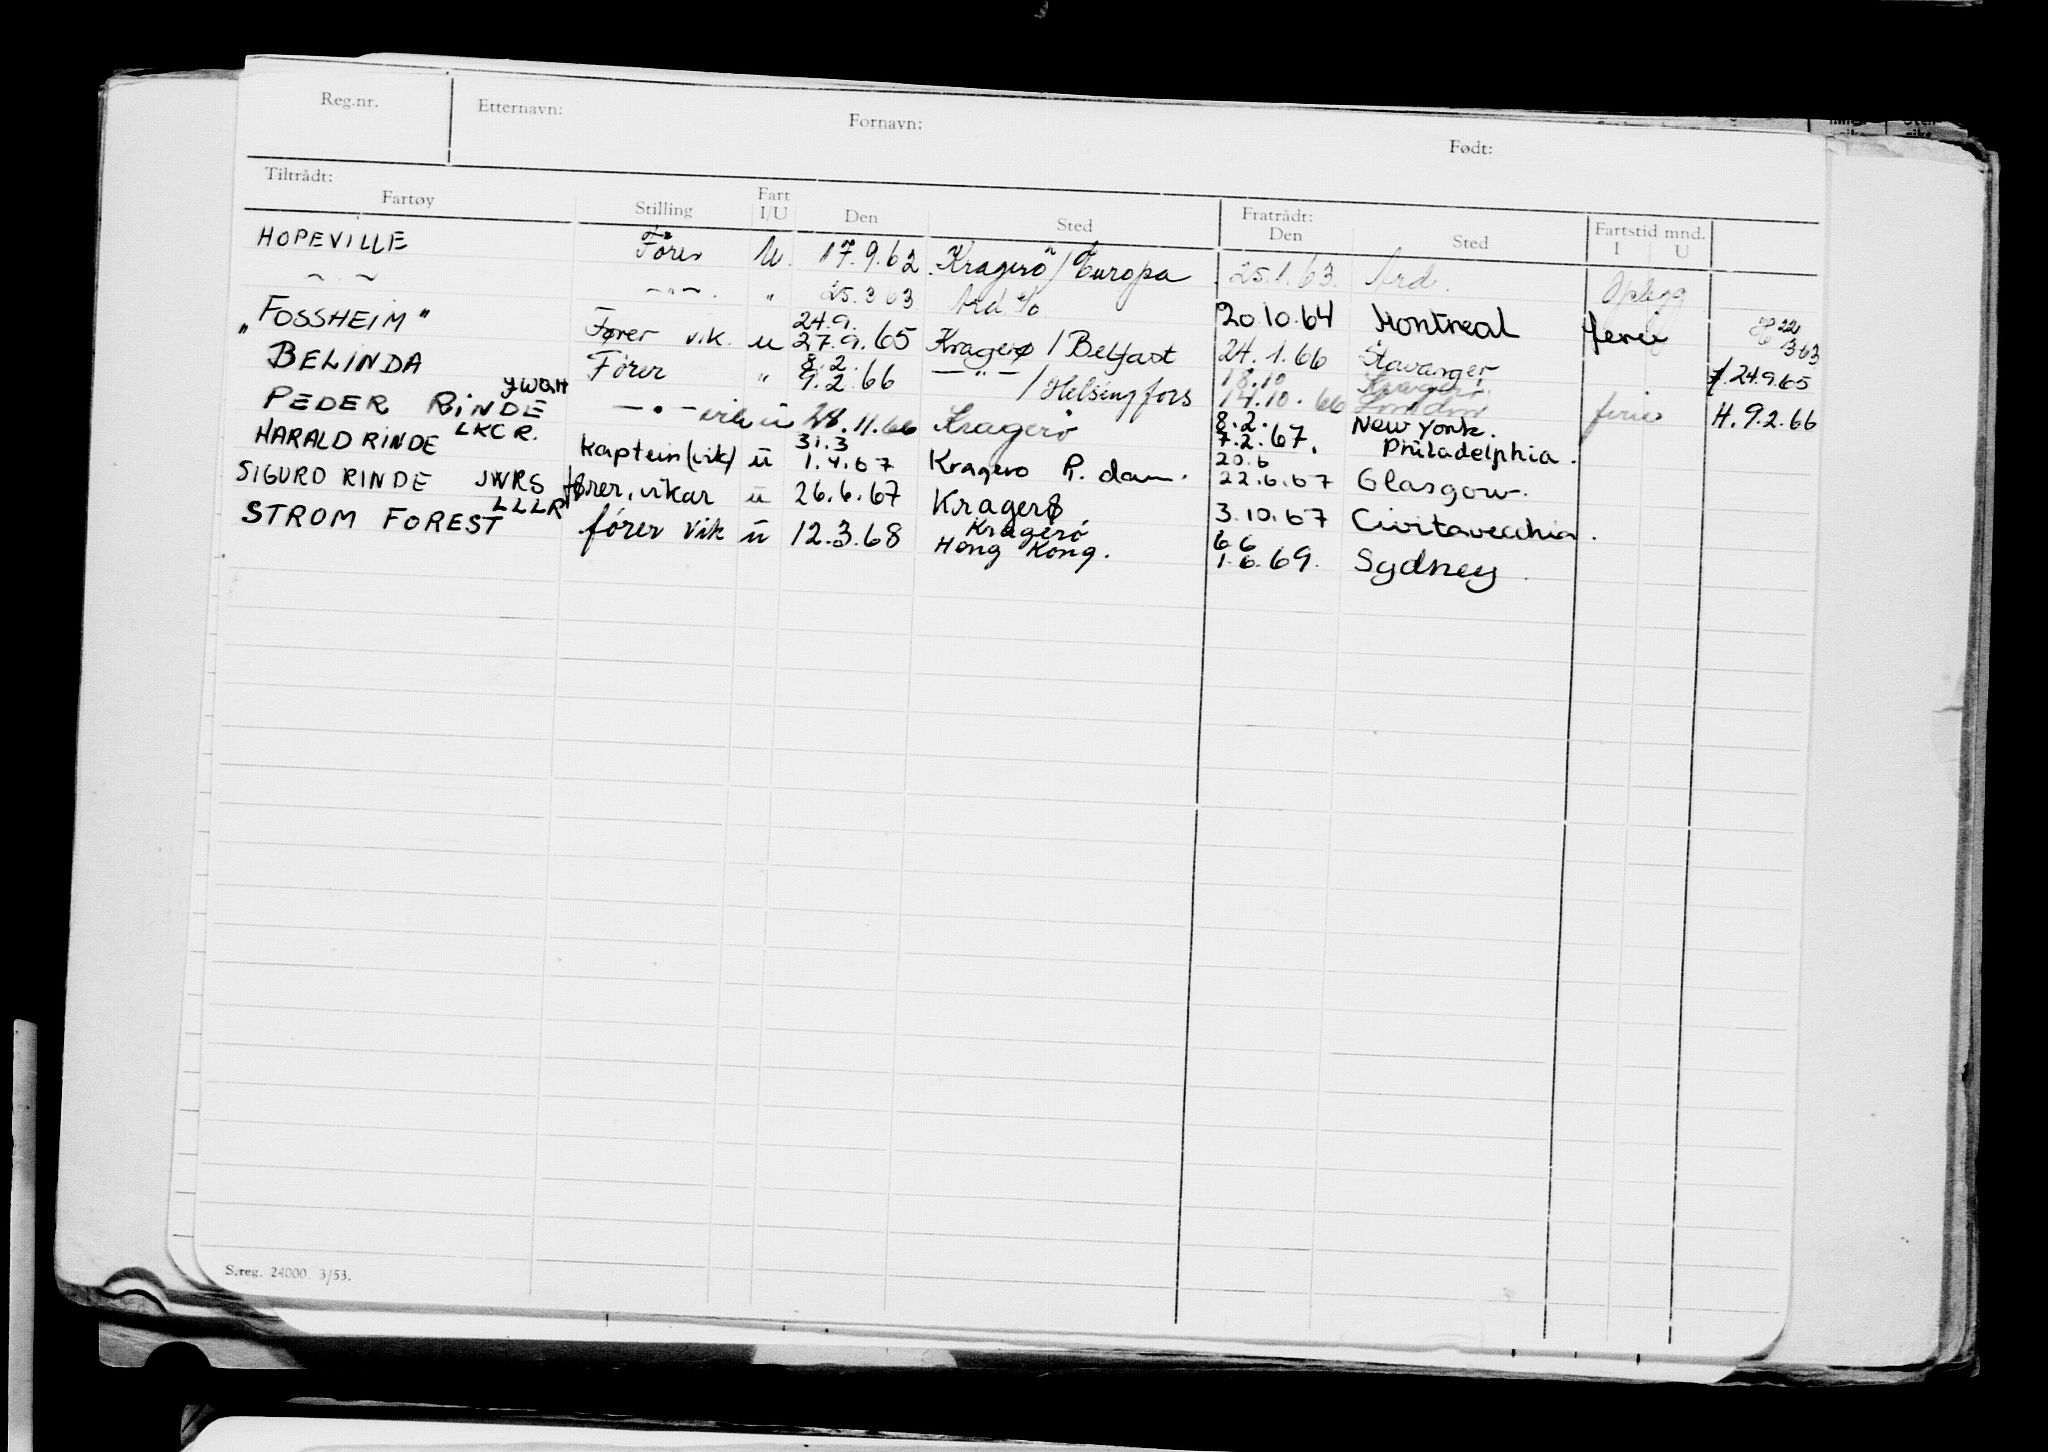 Reg.nr. Etternavn: Fornavn: Født:
Tiltrådt: Fratrådt:
Fartøy Stilling Fart I/U Den Sted Den Sted Fartstid mnd. I U
HOPEVILLE Fører U. 17.9.62 Kragerö / Europa 25.1.63. Ard. Oplegg
— " — — " — " 25.3 63 Ard 20.10.64 Montreal ferie
"FOSSHEIM" Fører vik. u 24.9. 27.9.65 Kragerø / Belfast 24.1.66 Stavanger 24.9.65
BELINDA Fører " 8.2. 9.2.66 — " — / Helsingfors 18.10 14.10.66 Kragerö London ferie H. 9.2.66
PEDER RINDE JWQH — " — vik u 28.11.66 Kragerö 8.2. 7.2.67. New York. Philadelphia.
HARALD RINDE LKCR. Kaptein (vik) u 31.3 1.4.67 Kragero R. dam. 20.6 22.6.67 Glasgow.
SIGURD RINDE JWRS fører, vikar u 26.6.67 Kragerø 3.10.67 Civitavecchia.
STROM FOREST LLLR fórer vik u 12.3.68 Kragerö Hong Kong. 6 6 1.6.69. Sydney.
S.reg. 24000. 3/53.